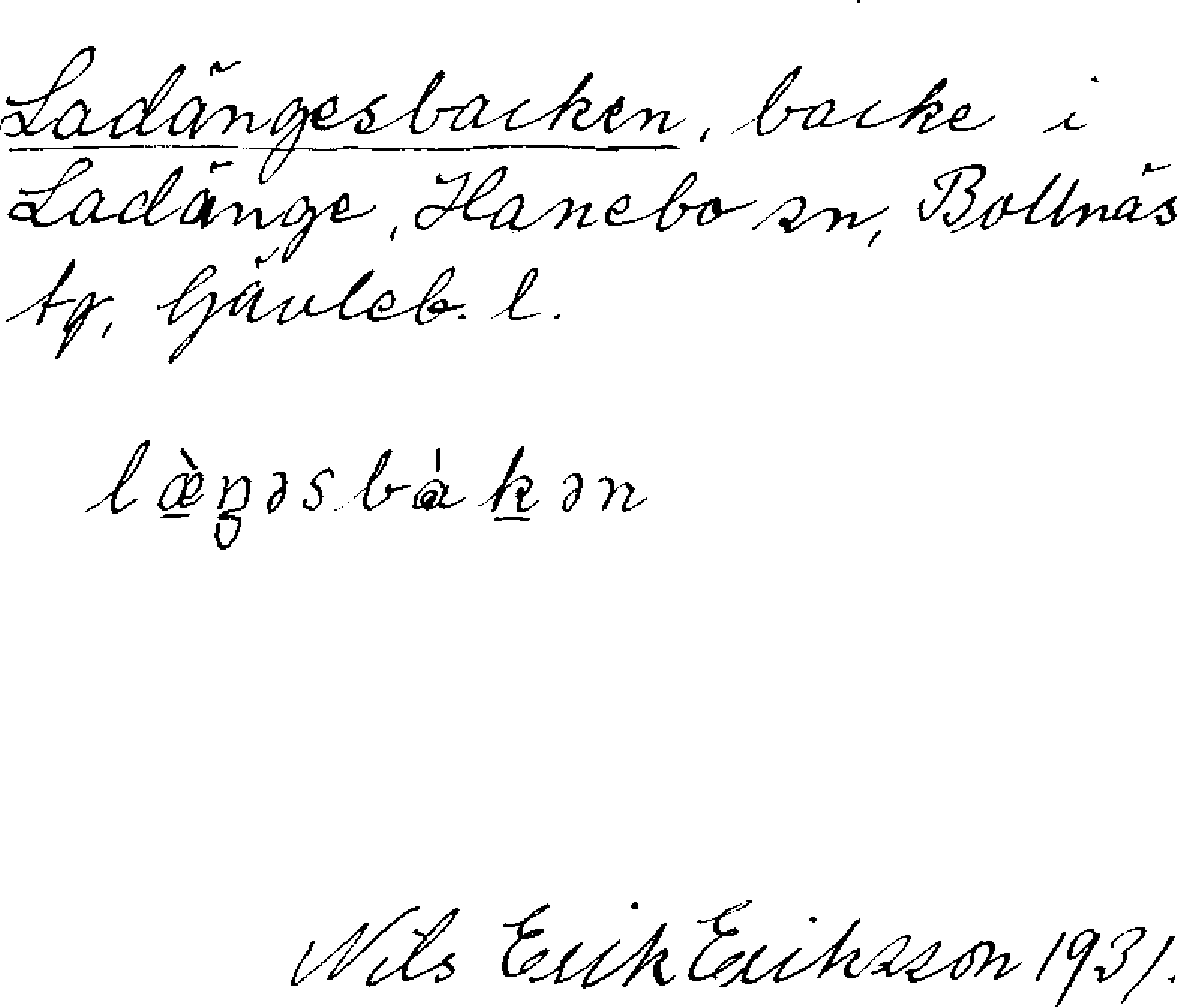 Ladängesbacken, backe i
Ladänge, Hanebo sn, Bollnäs
tg, Gävleb. l.
læ̱̀ŋəsbákən
Nils Erik Eriksson 1931.